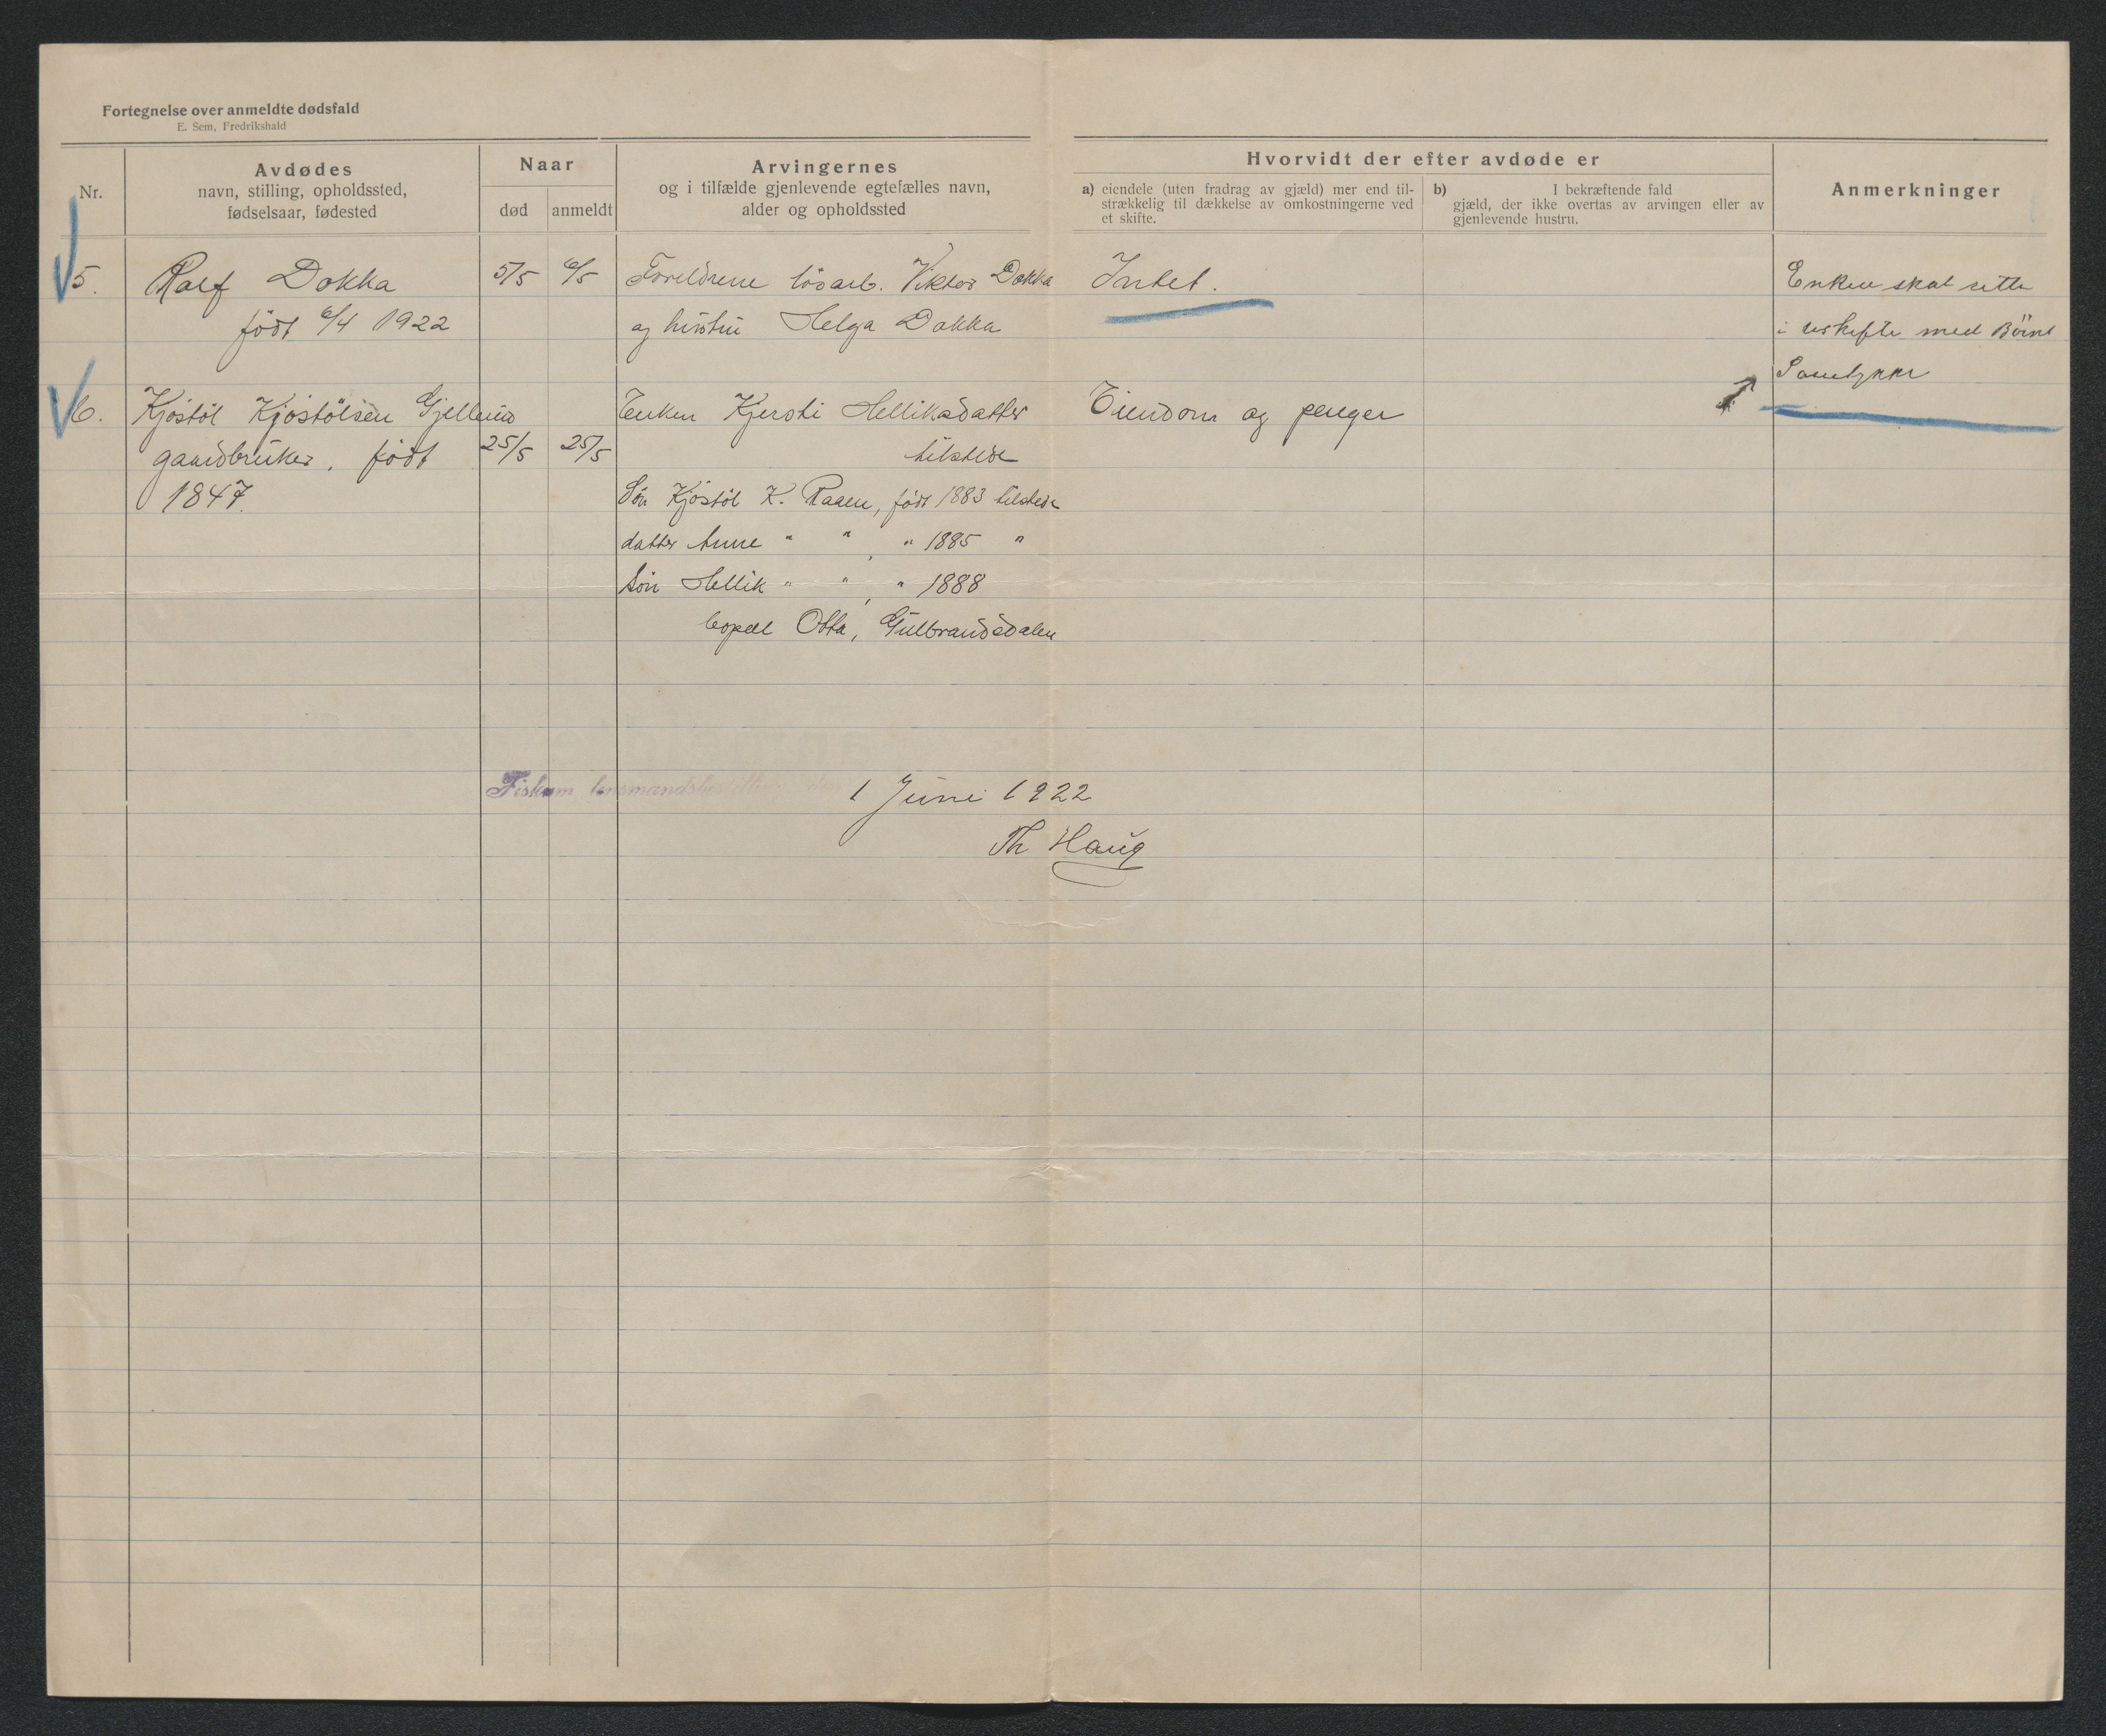 Fortegnelse over anmeldte dødsfald
E. Sem, Fredrikshald
Nr.
Avdødes
navn, stilling, opholdssted,
fødselsaar, fødested
Naar
død
anmeldt
Arvingernes
og i tilfælde gjenlevende egtefælles navn,
alder og opholdssted
Hvorvidt der efter avdøde er
a) eiendele (uten fradrag av gjæld) mer end til-
strækkelig til dækkelse av omkostningerne ved
et skifte.
b) I bekræftende fald
gjæld, der ikke overtas av arvingen eller av
gjenlevende hustru.
Anmerkninger
5.
Ralf Dokka
født 6/4 1922
5/5
6/5
Foreldrene løsarb. Viktor Dokka
og hustru Helga Dokka
Intet.
Enken skal sitte
i uskifte med Børns
Samtykke
6.
Kjøstøl Kjøstølsen Gjellerud
gaardbruker, født
1847.
25/5
25/5
Enken Kjersti Helliksdatter
tilstede
Søn Kjøstøl K. Raaen, født 1883 tilstede
datter Anne " " , " 1885 "
Søn Hellik " " , " 1888
bopæl Otta, Gulbrandsdalen
Eiendom og penger
Fiskum lensmandsbestilling den
1 Juni 1922
Th Haug